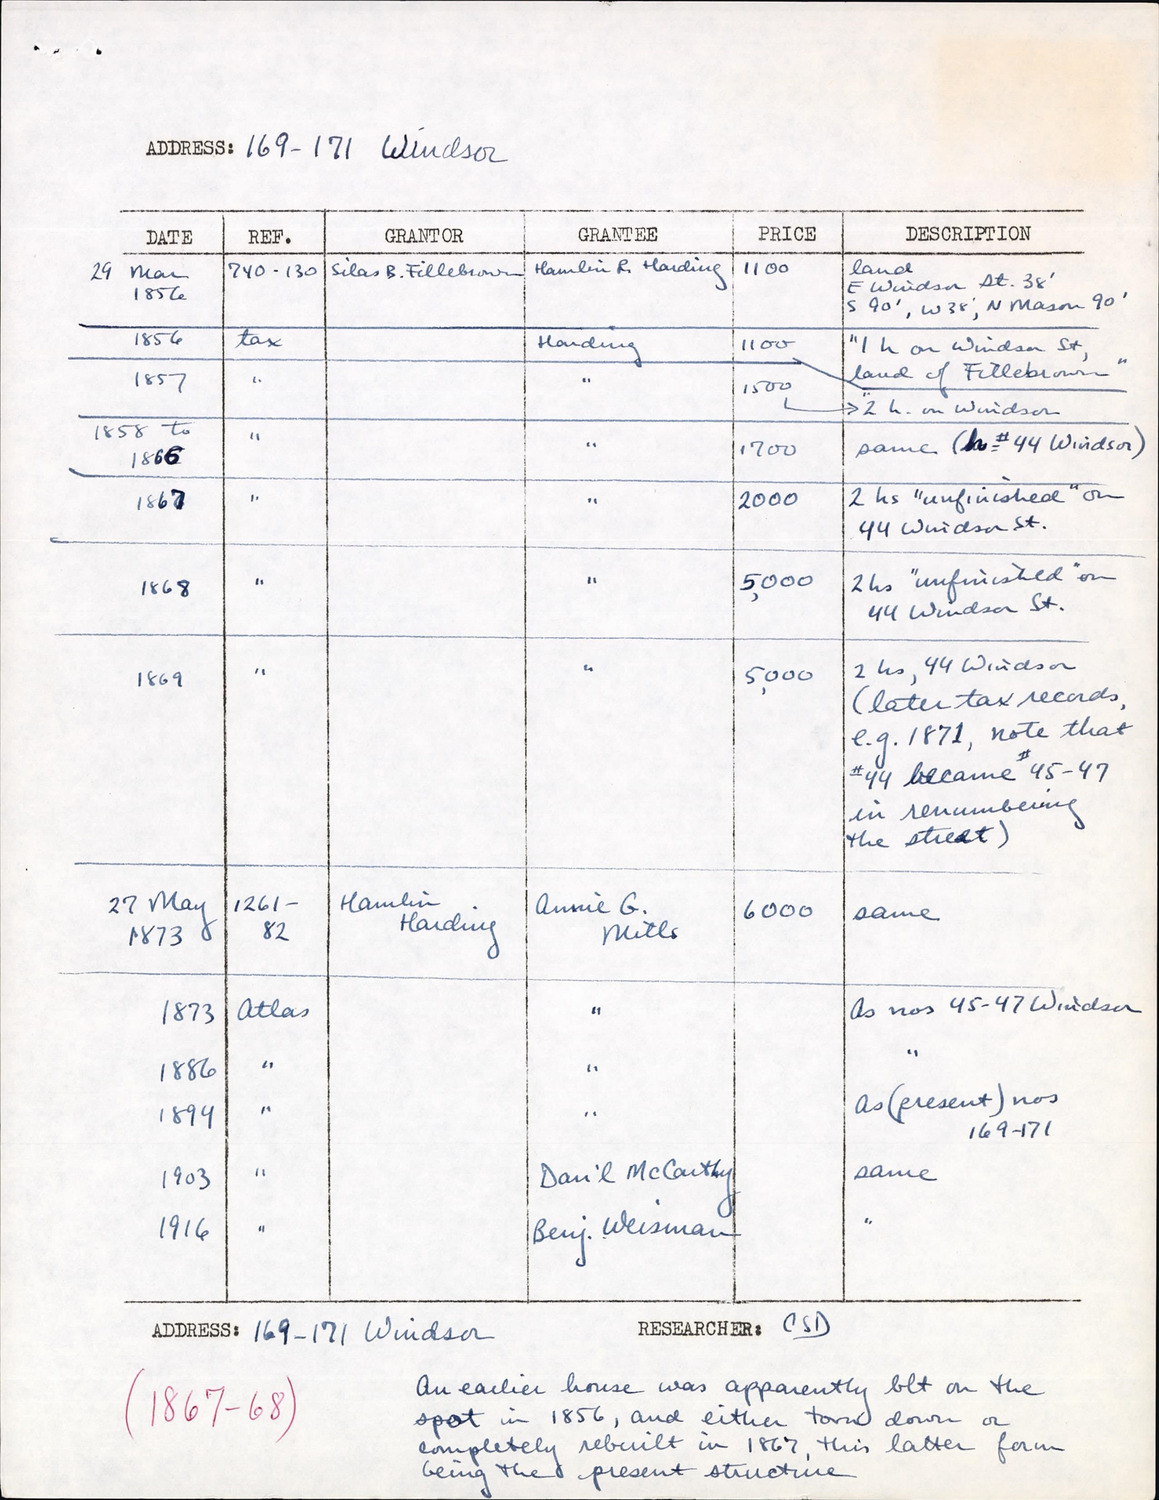 ADDRESS: 169-171 Windsor
DATE REF. GRANTOR GRANTEE PRICE DESCRIPTION
29 Mar 1856 740-130 Silas B. Fillebrown Hamlin R. Harding 1100 land
E Windsor St. 38'
S 90', W 38', N Mason 90'
1856 tax Harding 1100 "1 h on Windsor St,
land of Fillebrown"
1857 " " 1500 "2 h. on Windsor
1858 to 1866 " " 1700 same (h# 44 Windsor)
1867 " " 2000 2 hs "unfinished" on
44 Windsor St.
1868 " " 5,000 2 hs "unfinished" on
44 Windsor St.
1869 " " 5,000 2 hs, 44 Windsor
(later tax records,
e.g. 1871, note that
#44 became #45-47
in renumbering
the street)
27 May 1873 1261-82 Hamlin Harding Annie G. Mills 6000 same
1873 Atlas " As nos 45-47 Windsor
1886 " " "
1894 " " As (present) nos
169-171
1903 " Dan'l McCarthy same
1916 " Benj. Weisman "
ADDRESS: 169-171 Windsor RESEARCHER: CSD
(1867-68)
An earlier house was apparently blt on the
spot in 1856, and either torn down or
completely rebuilt in 1867, this latter form
being the present structure